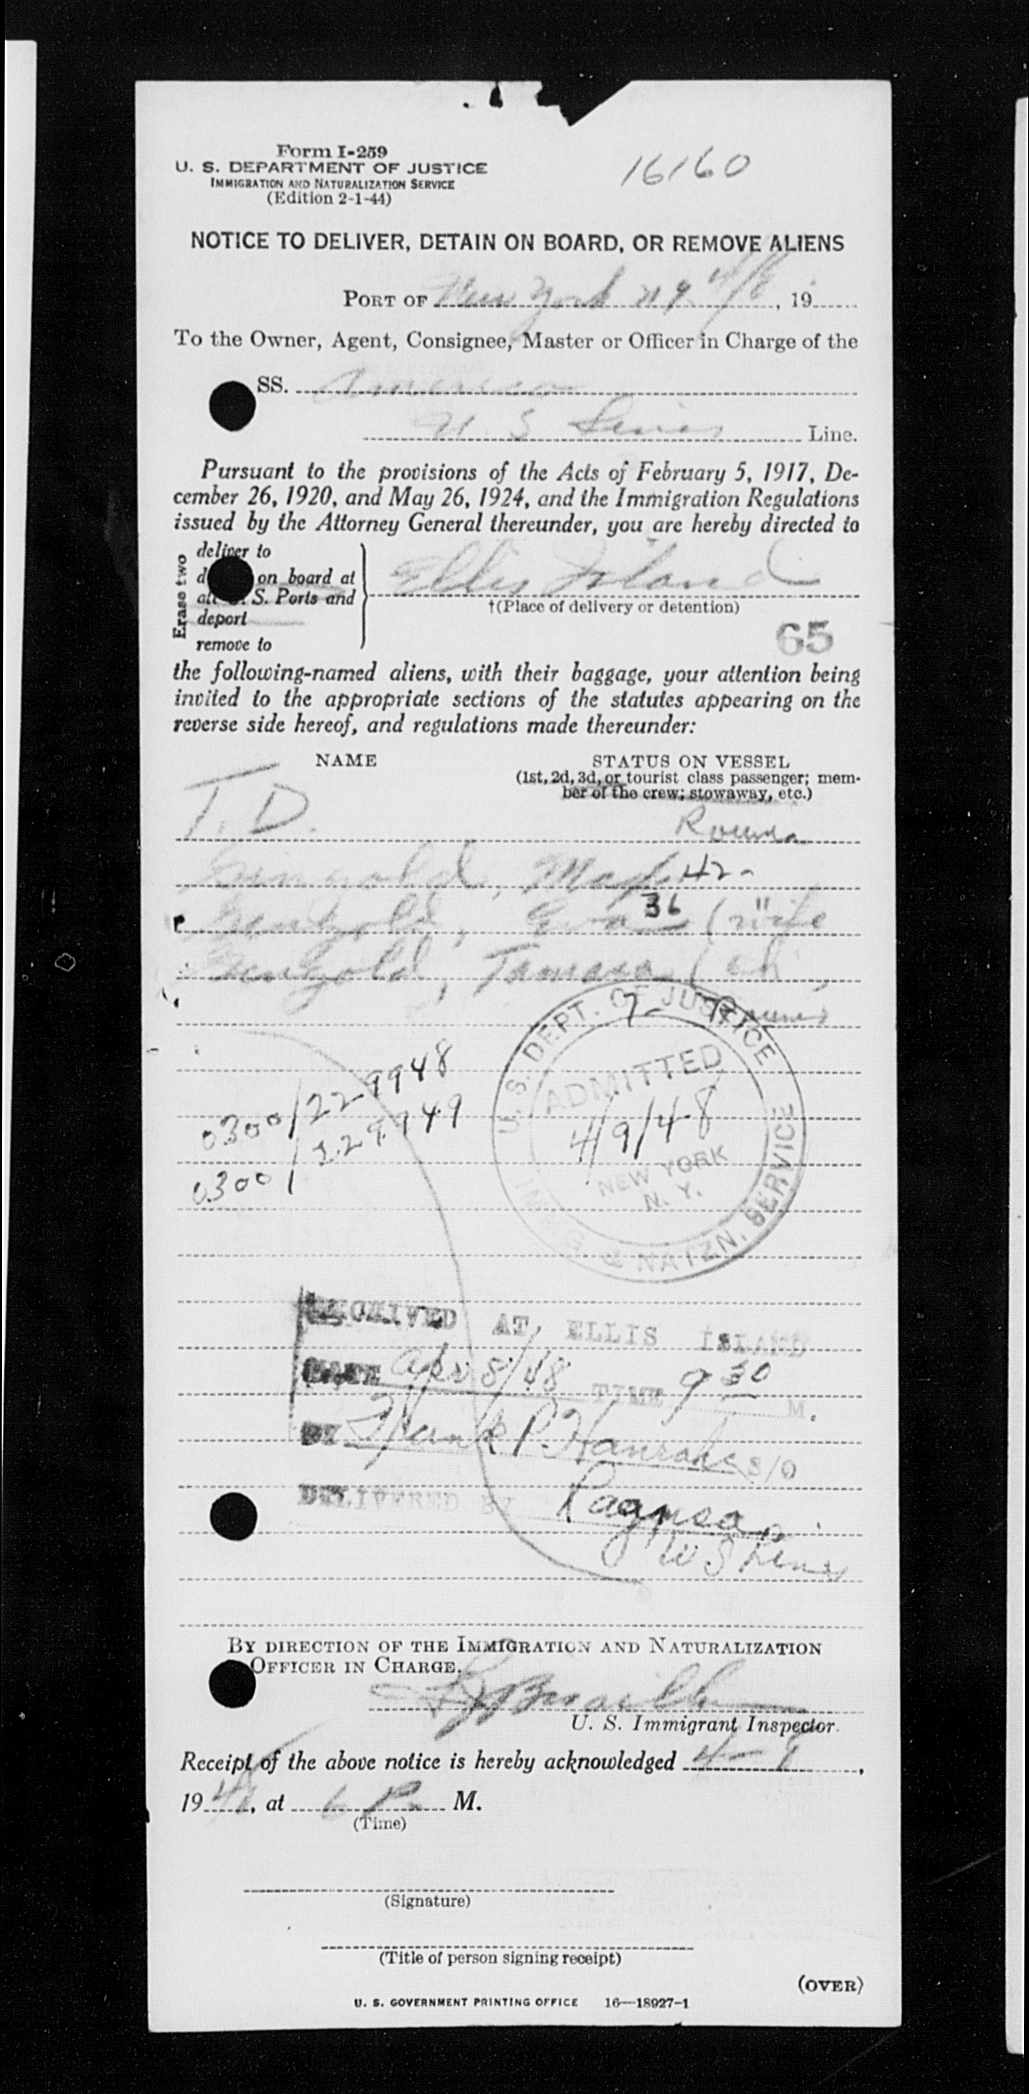 Form I-259
U. S. DEPARTMENT OF JUSTICE
IMMIGRATION AND NATURALIZATION SERVICE
(Edition 2-1-44)
16160
NOTICE TO DELIVER, DETAIN ON BOARD, OR REMOVE ALIENS
PORT OF New York N Y 4/8, 19
To the Owner, Agent, Consignee, Master or Officer in Charge of the
SS. America
U S Lines Line.
Pursuant to the provisions of the Acts of February 5, 1917, De-
cember 26, 1920, and May 26, 1924, and the Immigration Regulations
issued by the Attorney General thereunder, you are hereby directed to
Erase two
deliver to
on board at
S. Ports and
deport
remove to
Ellis Island
†(Place of delivery or detention)
65
the following-named aliens, with their baggage, your attention being
invited to the appropriate sections of the statutes appearing on the
reverse side hereof, and regulations made thereunder:
NAME
STATUS ON VESSEL
(1st, 2d, 3d, or tourist class passenger; mem-
ber of the crew; stowaway, etc.)
T. D.
42
36 (wife
Tamara (ch
U. S. DEPT. OF JUSTICE
IMMIG. & NATZN. SERVICE
ADMITTED
4/9/48
NEW YORK
N. Y.
0300/229948
0300/229949
RECEIVED AT ELLIS ISLAND
DATE Apr 8/48 TIME 9 30 M.
BY Frank P. Hanrahan S/O
DELIVERED BY
U S Lines
BY DIRECTION OF THE IMMIGRATION AND NATURALIZATION
OFFICER IN CHARGE.
U. S. Immigrant Inspector.
Receipt of the above notice is hereby acknowledged 4-8,
1948, at 6 P M.
(Time)
(Signature)
(Title of person signing receipt)
(OVER)
U. S. GOVERNMENT PRINTING OFFICE 16—18927-1